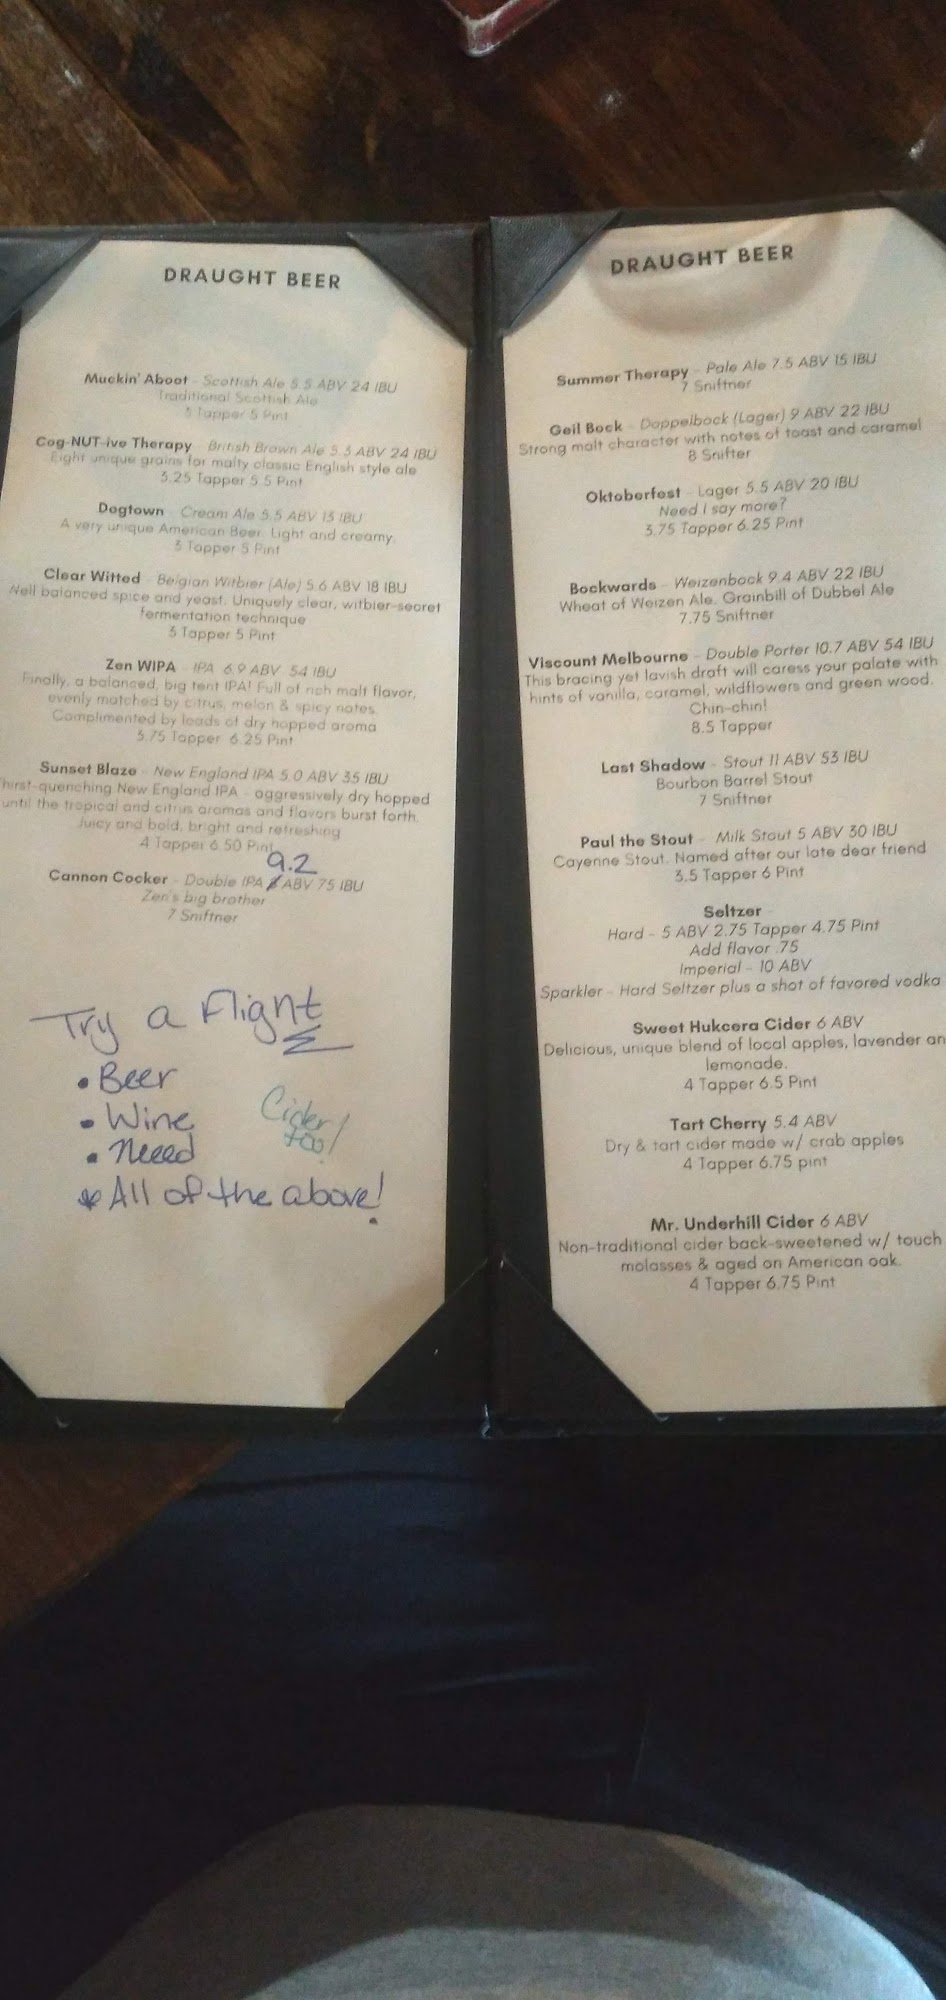 DRAUGHT BEER
Muckin' Aboot - Scottish Ale 5.5 ABV 24 IBU
Traditional Scottish Ale
3 Tapper 5 Pint
Cog-NUT-ive Therapy - British Brown Ale 5.3 ABV 24 IBU
Eight unique grains for malty classic English style ale
3.25 Tapper 5.5 Pint
Dogtown - Cream Ale 5.5 ABV 13 IBU
A very unique American Beer. Light and creamy.
3 Tapper 5 Pint
Clear Witted - Belgian Witbier (Ale) 5.6 ABV 18 IBU
Well balanced spice and yeast. Uniquely clear, witbier-secret
fermentation technique
3 Tapper 5 Pint
Zen WIPA - IPA 6.9 ABV 54 IBU
Finally, a balanced, big tent IPA! Full of rich malt flavor,
evenly matched by citrus, melon & spicy notes.
Complimented by loads of dry hopped aroma
3.75 Tapper 6.25 Pint
Sunset Blaze - New England IPA 5.0 ABV 35 IBU
hirst-quenching New England IPA - aggressively dry hopped
until the tropical and citrus aromas and flavors burst forth.
Juicy and bold, bright and refreshing
4 Tapper 6.50 Pint
9.2
Cannon Cocker - Double IPA ABV 75 IBU
Zen's big brother
7 Sniftner
Try a Flight
• Beer
• Wine
Cider too!
• Meed
* All of the above!
DRAUGHT BEER
Summer Therapy - Pale Ale 7.5 ABV 15 IBU
7 Sniftner
Geil Bock - Doppelbock (Lager) 9 ABV 22 IBU
Strong malt character with notes of toast and caramel
8 Snifter
Oktoberfest - Lager 5.5 ABV 20 IBU
Need I say more?
3.75 Tapper 6.25 Pint
Bockwards - Weizenbock 9.4 ABV 22 IBU
Wheat of Weizen Ale. Grainbill of Dubbel Ale
7.75 Sniftner
Viscount Melbourne - Double Porter 10.7 ABV 54 IBU
This bracing yet lavish draft will caress your palate with
hints of vanilla, caramel, wildflowers and green wood.
Chin-chin!
8.5 Tapper
Last Shadow - Stout 11 ABV 53 IBU
Bourbon Barrel Stout
7 Sniftner
Paul the Stout - Milk Stout 5 ABV 30 IBU
Cayenne Stout. Named after our late dear friend
3.5 Tapper 6 Pint
Seltzer
Hard - 5 ABV 2.75 Tapper 4.75 Pint
Add flavor .75
Imperial - 10 ABV
Sparkler - Hard Seltzer plus a shot of favored vodka
Sweet Hukcera Cider 6 ABV
Delicious, unique blend of local apples, lavender an
lemonade.
4 Tapper 6.5 Pint
Tart Cherry 5.4 ABV
Dry & tart cider made w/ crab apples
4 Tapper 6.75 pint
Mr. Underhill Cider 6 ABV
Non-traditional cider back-sweetened w/ touch
molasses & aged on American oak.
4 Tapper 6.75 Pint